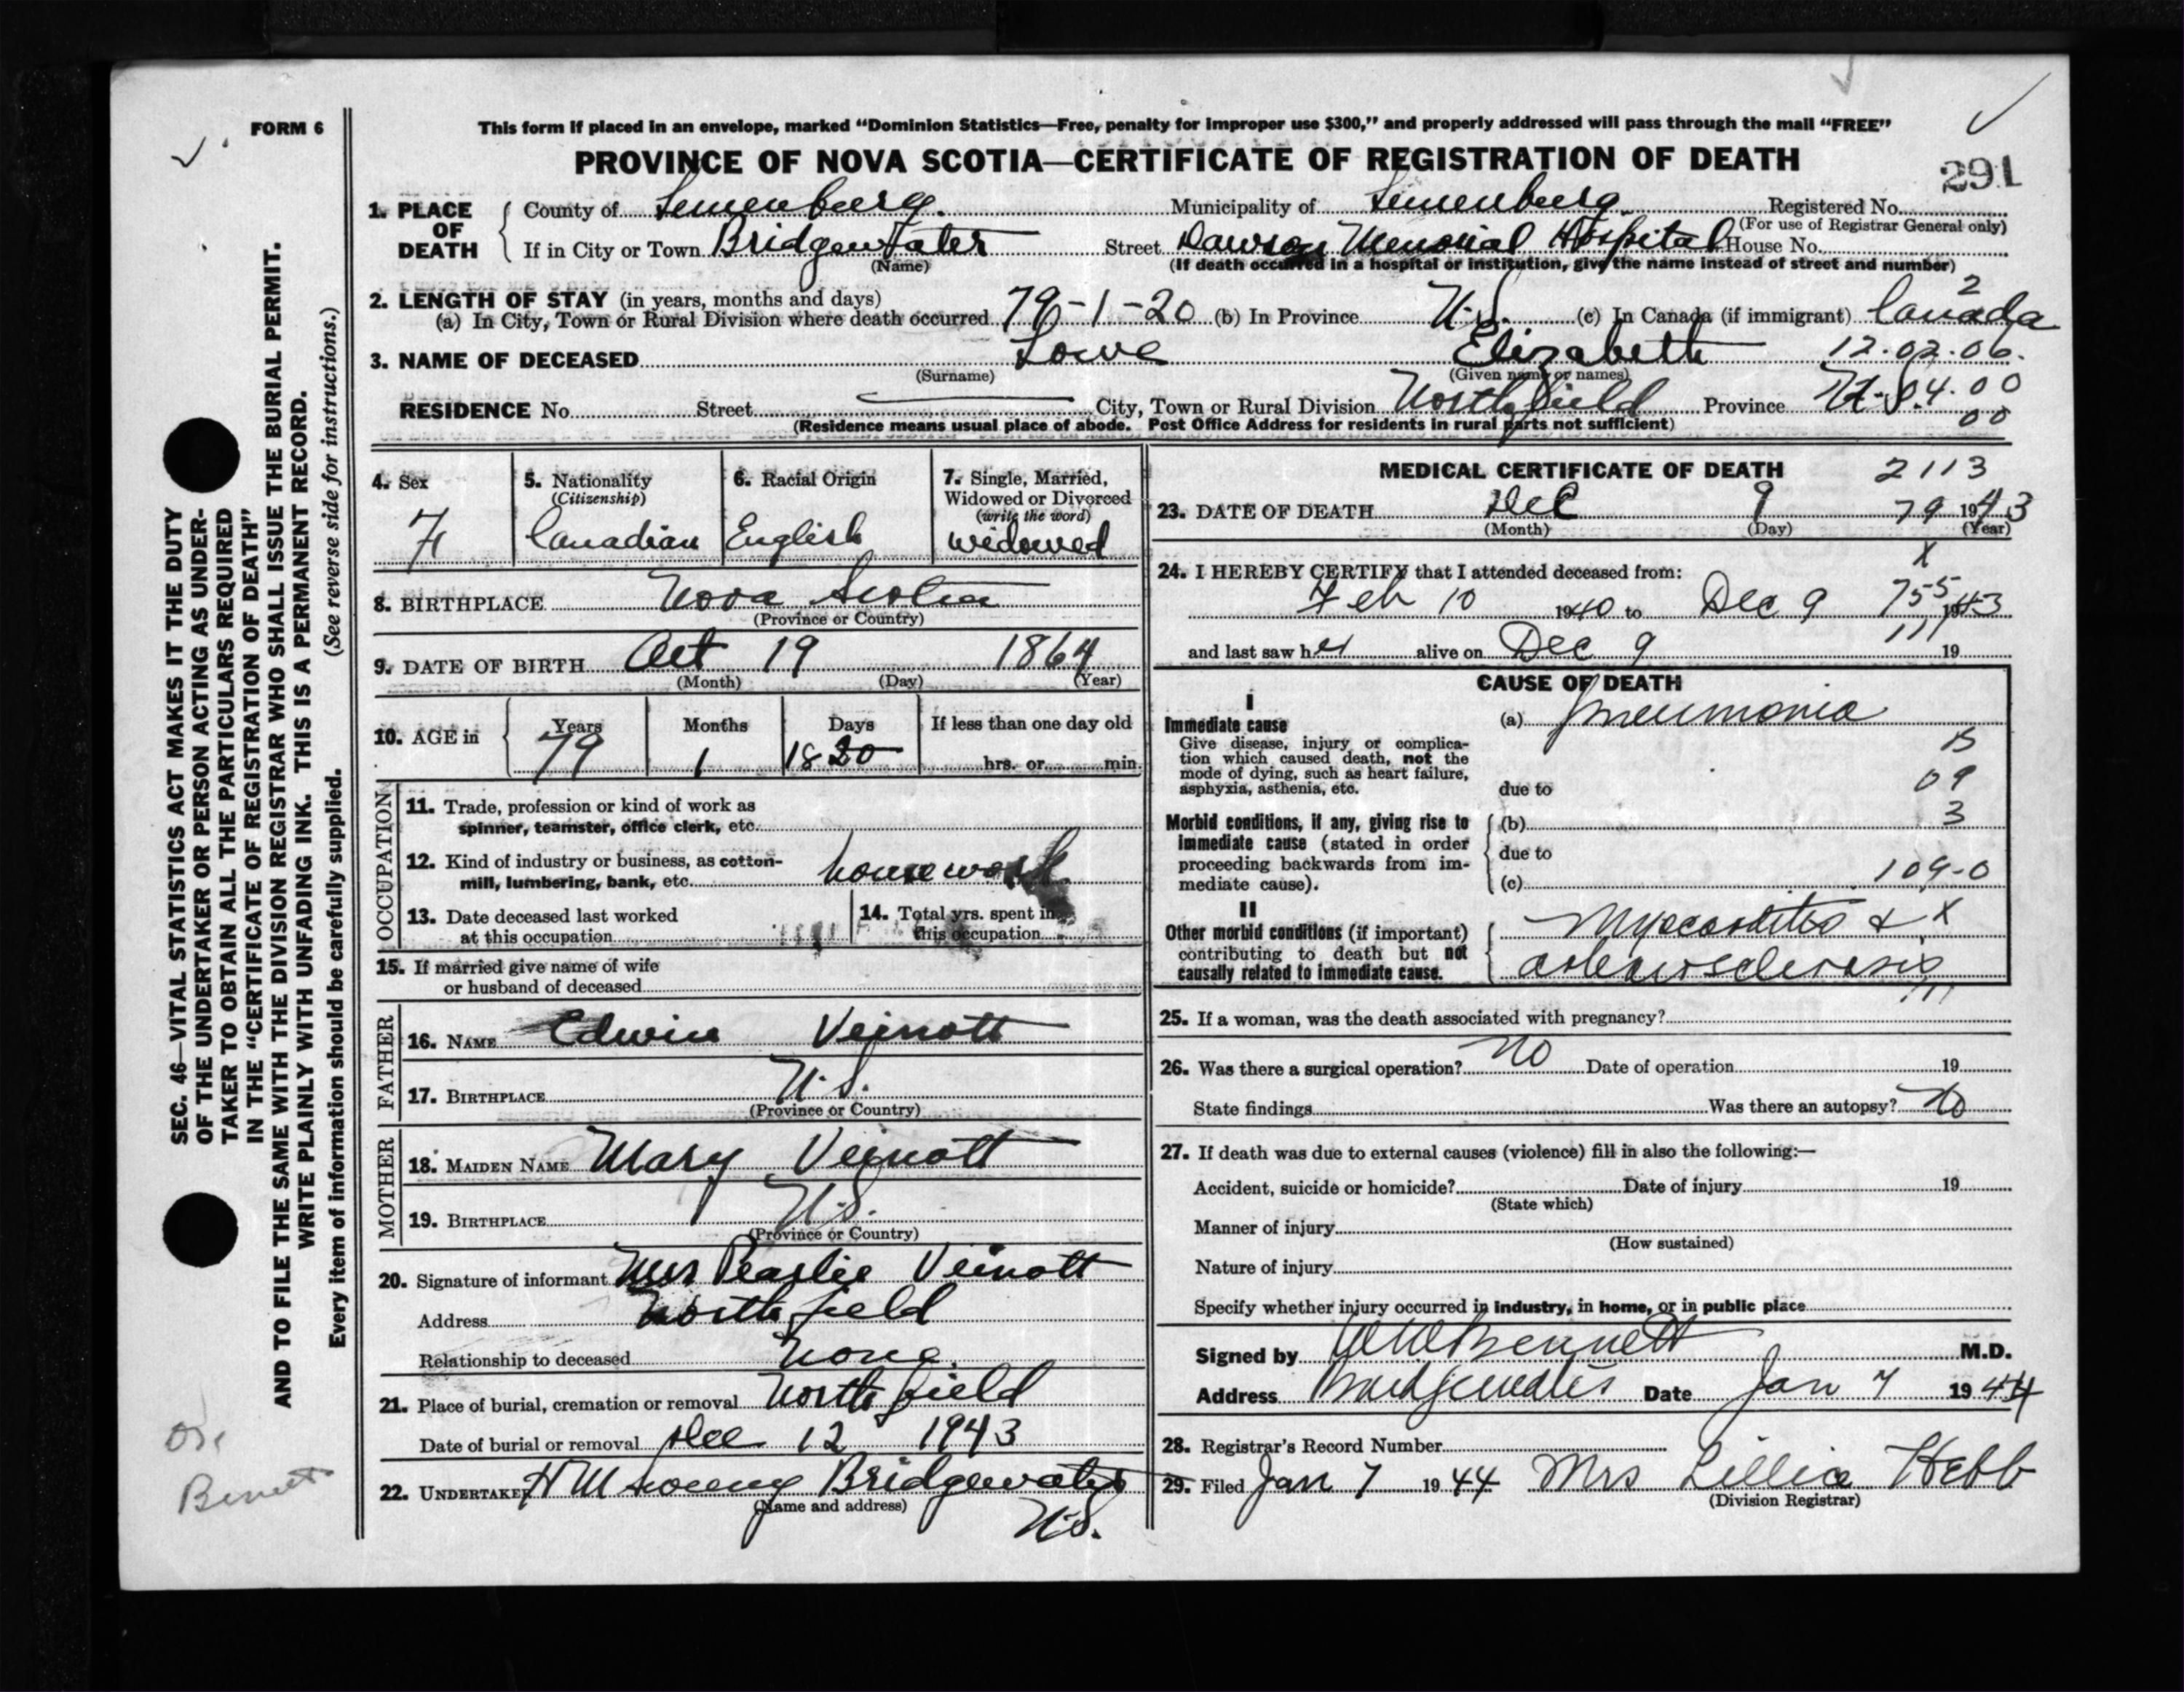 FORM 6
This form if placed in an envelope, marked “Dominion Statistics—Free, penalty for improper use $300,” and properly addressed will pass through the mail “FREE”
PROVINCE OF NOVA SCOTIA—CERTIFICATE OF REGISTRATION OF DEATH
291
1. PLACE OF DEATH
County of Lunenburg. Municipality of Lunenburg. Registered No.
(For use of Registrar General only)
If in City or Town Bridgewater Street Dawson Memorial Hospital House No.
(Name) (If death occurred in a hospital or institution, give the name instead of street and number)
2. LENGTH OF STAY (in years, months and days) 2
(a) In City, Town or Rural Division where death occurred 79-1-20 (b) In Province N.S. (c) In Canada (if immigrant) Canada
3. NAME OF DECEASED Lowe Elizabeth 12.02.06.
(Surname) (Given name or names)
RESIDENCE No. Street City, Town or Rural Division Northfield Province N.S. 4.00
00
(Residence means usual place of abode. Post Office Address for residents in rural parts not sufficient)
4. Sex F
5. Nationality (Citizenship) Canadian
6. Racial Origin English
7. Single, Married, Widowed or Divorced (write the word) widowed
8. BIRTHPLACE Nova Scotia
(Province or Country)
9. DATE OF BIRTH Oct 19 1864
(Month) (Day) (Year)
10. AGE in Years Months Days If less than one day old
79 1 18 20 hrs. or min.
OCCUPATION
11. Trade, profession or kind of work as
spinner, teamster, office clerk, etc.
12. Kind of industry or business, as cotton-
mill, lumbering, bank, etc. housework
13. Date deceased last worked
at this occupation
14. Total yrs. spent in
this occupation
15. If married give name of wife
or husband of deceased
FATHER
16. NAME Edwin Veinott
17. BIRTHPLACE N.S.
(Province or Country)
MOTHER
18. MAIDEN NAME Mary Veinott
19. BIRTHPLACE N.S.
(Province or Country)
20. Signature of informant Mrs Pearlie Veinott
Address Northfield
Relationship to deceased None.
21. Place of burial, cremation or removal Northfield
Date of burial or removal Dec 12 1943
22. UNDERTAKER H M Bridgewater
(Name and address)
N.S.
MEDICAL CERTIFICATE OF DEATH 2113
23. DATE OF DEATH Dec 9 79 1943
(Month) (Day) (Year)
X
24. I HEREBY CERTIFY that I attended deceased from:
Feb 10 1940 to Dec 9 755 1943
111
and last saw her alive on Dec 9 19
CAUSE OF DEATH
I
Immediate cause
Give disease, injury or complica-
tion which caused death, not the
mode of dying, such as heart failure,
asphyxia, asthenia, etc.
(a) Pneumonia
due to
09
Morbid conditions, if any, giving rise to
immediate cause (stated in order
proceeding backwards from im-
mediate cause).
(b) 3
due to
(c) 109-0
II
Other morbid conditions (if important)
contributing to death but not
causally related to immediate cause.
Myocarditis & X
arteriosclerosis
111
25. If a woman, was the death associated with pregnancy?
26. Was there a surgical operation? No Date of operation 19
State findings Was there an autopsy? No
27. If death was due to external causes (violence) fill in also the following:—
Accident, suicide or homicide? Date of injury 19
(State which)
Manner of injury
(How sustained)
Nature of injury
Specify whether injury occurred in industry, in home, or in public place
Signed by Bennett M.D.
Address Bridgewater Date Jan 7 1944
28. Registrar's Record Number
29. Filed Jan 7 1944 Mrs Lillia Hebb
(Division Registrar)
SEC. 46—VITAL STATISTICS ACT MAKES IT THE DUTY
OF THE UNDERTAKER OR PERSON ACTING AS UNDER-
TAKER TO OBTAIN ALL THE PARTICULARS REQUIRED
IN THE “CERTIFICATE OF REGISTRATION OF DEATH”
AND TO FILE THE SAME WITH THE DIVISION REGISTRAR WHO SHALL ISSUE THE BURIAL PERMIT.
WRITE PLAINLY WITH UNFADING INK. THIS IS A PERMANENT RECORD.
Every item of information should be carefully supplied. (See reverse side for instructions.)